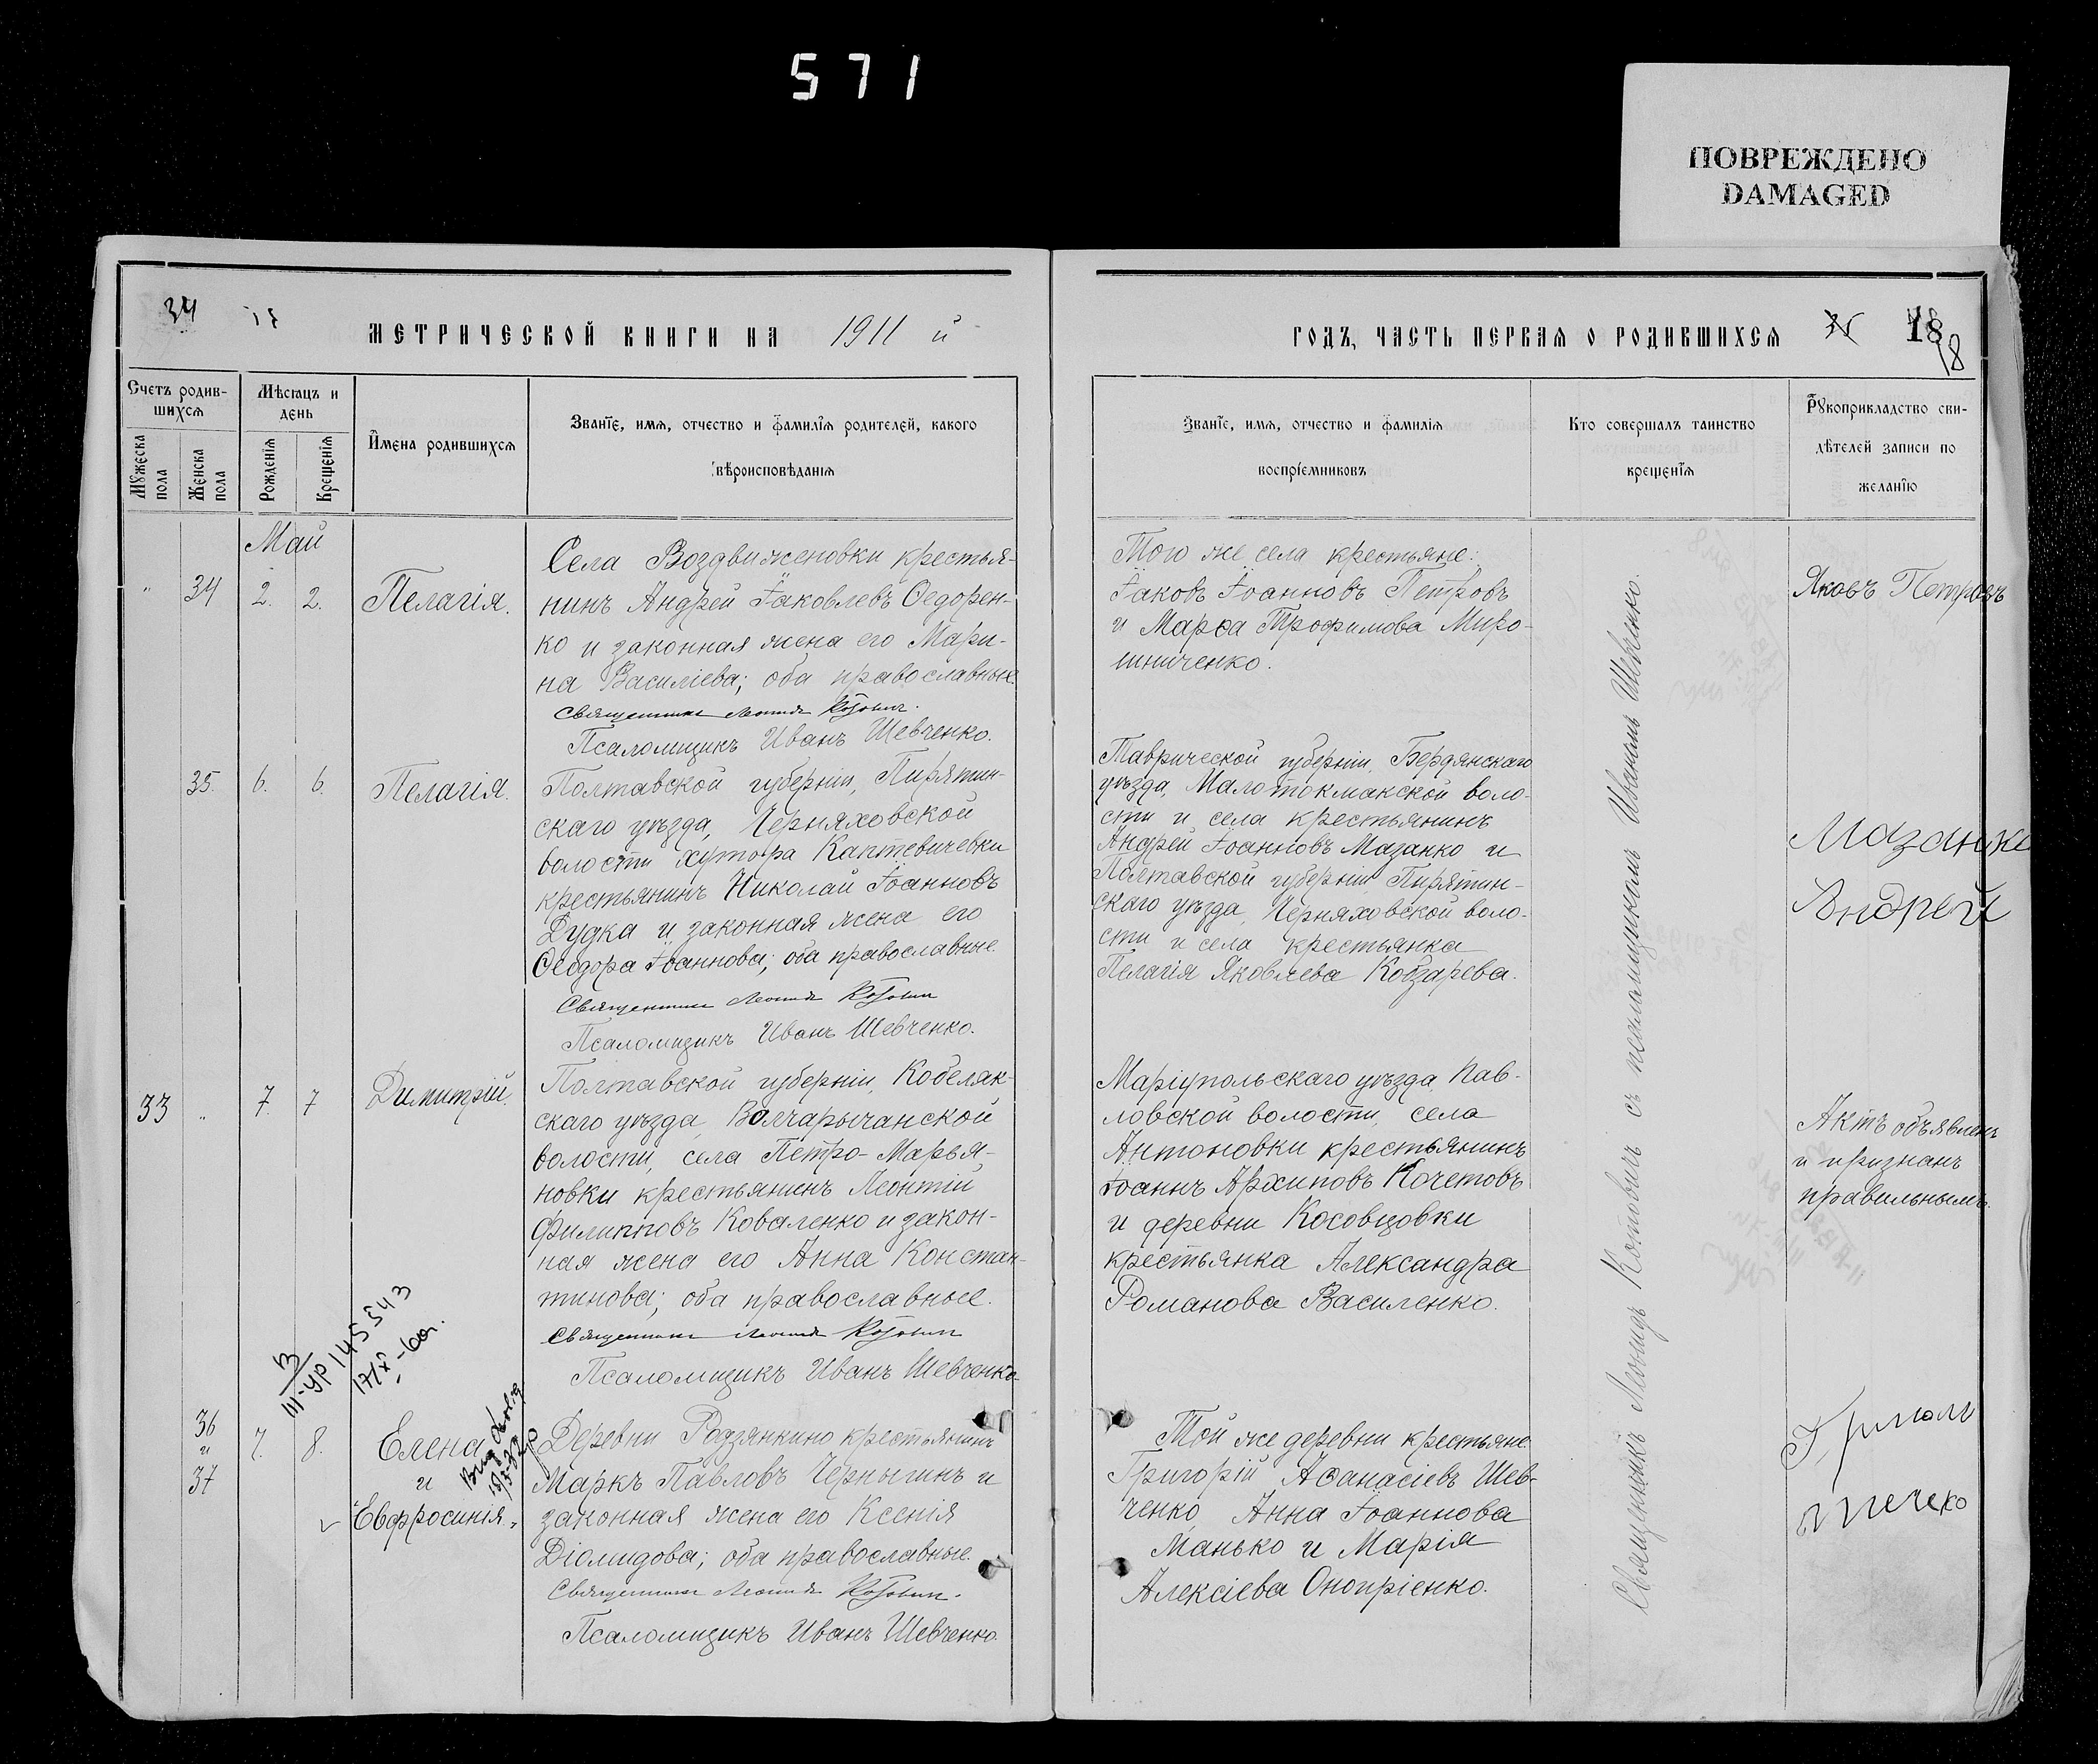 571
ПОВРЕЖДЕНО
DAMAGED
34
МЕТРИЧЕСКОЙ КНИГИ НА 1911 й
Счетъ родив-
шихся
Мужеска пола
Женска пола
Мѣсяцъ и
день
Рожденія
Крещенія
Имена родившихся
Званіе, имя, отчество и фамилія родителей, какого
вѣроисповѣданія
Май
" 34 2. 2. Пелагія.
Села Воздвиженовки крестья-
нинъ Андрей Іаковлевъ Ѳедорен-
ко и законная жена его Мари-
на Василіева; оба православные.
Священникъ Леонидъ Котовичъ.
Псаломщикъ Иванъ Шевченко.
35. 6. 6. Пелагія.
Полтавской губерніи, Пирятин-
скаго уѣзда, Черняховской
волости хутора Каптевичевки
крестьянинъ Николай Іоанновъ
Дудка и законная жена его
Ѳеодора Іоаннова; оба православные.
Священникъ Леонидъ Котовичъ
Псаломщикъ Иванъ Шевченко.
33 " 7. 7 Димитрій.
Полтавской губерніи, Кобеляк-
скаго уѣзда, Волчарычанской
волости, села Петро-Марья-
новки крестьянинъ Леонтій
Филипповъ Коваленко и закон-
ная жена его Анна Констан-
тинова; оба православные.
Священникъ Леонидъ Котовичъ
Псаломщикъ Иванъ Шевченко.
III-УР 145543
36
и
37
7. 8. Елена
и
Евфросинія.
Деревни Родзянкино крестьянинъ
Маркъ Павловъ Чернычинъ и
законная жена его Ксенія
Діомидова; оба православные.
Священникъ Леонидъ Котовичъ.
Псаломщикъ Иванъ Шевченко.
ГОДЪ, ЧАСТЬ ПЕРВАЯ О РОДИВШИХСЯ
35 18
18
Званіе, имя, отчество и фамилія
воспріемниковъ
Кто совершалъ таинство
крещенія
Рукоприкладство сви-
дѣтелей записи по
желанію
Того же села крестьяне:
Іаковъ Іоанновъ Петровъ
и Марѳа Трофимова Миро-
шниченко.
Яковъ Петровъ
Таврической губерніи, Бердянскаго
уѣзда, Малотокмакской воло-
сти и села крестьянинъ
Андрей Іоанновъ Мазанко и
Полтавской губерніи Пирятин-
скаго уѣзда, Черняховской воло-
сти и села крестьянка
Пелагія Яковлева Кобзарева.
Мазанко
Андрей
Маріупольскаго уѣзда Пав-
ловской волости, села
Антоновки крестьянинъ
Іоаннъ Архиповъ Кочетовъ
и деревни Косовцовки
крестьянка Александра
Романова Василенко.
Актъ объявленъ
и признанъ
правильнымъ.
Той же деревни крестьяне
Григорій Аѳанасіевъ Шев-
ченко, Анна Іоаннова
Манько и Марія
Алексіева Оноприенко.
Священникъ Леонидъ Котовичъ съ псаломщикомъ Иваномъ Шевченко.